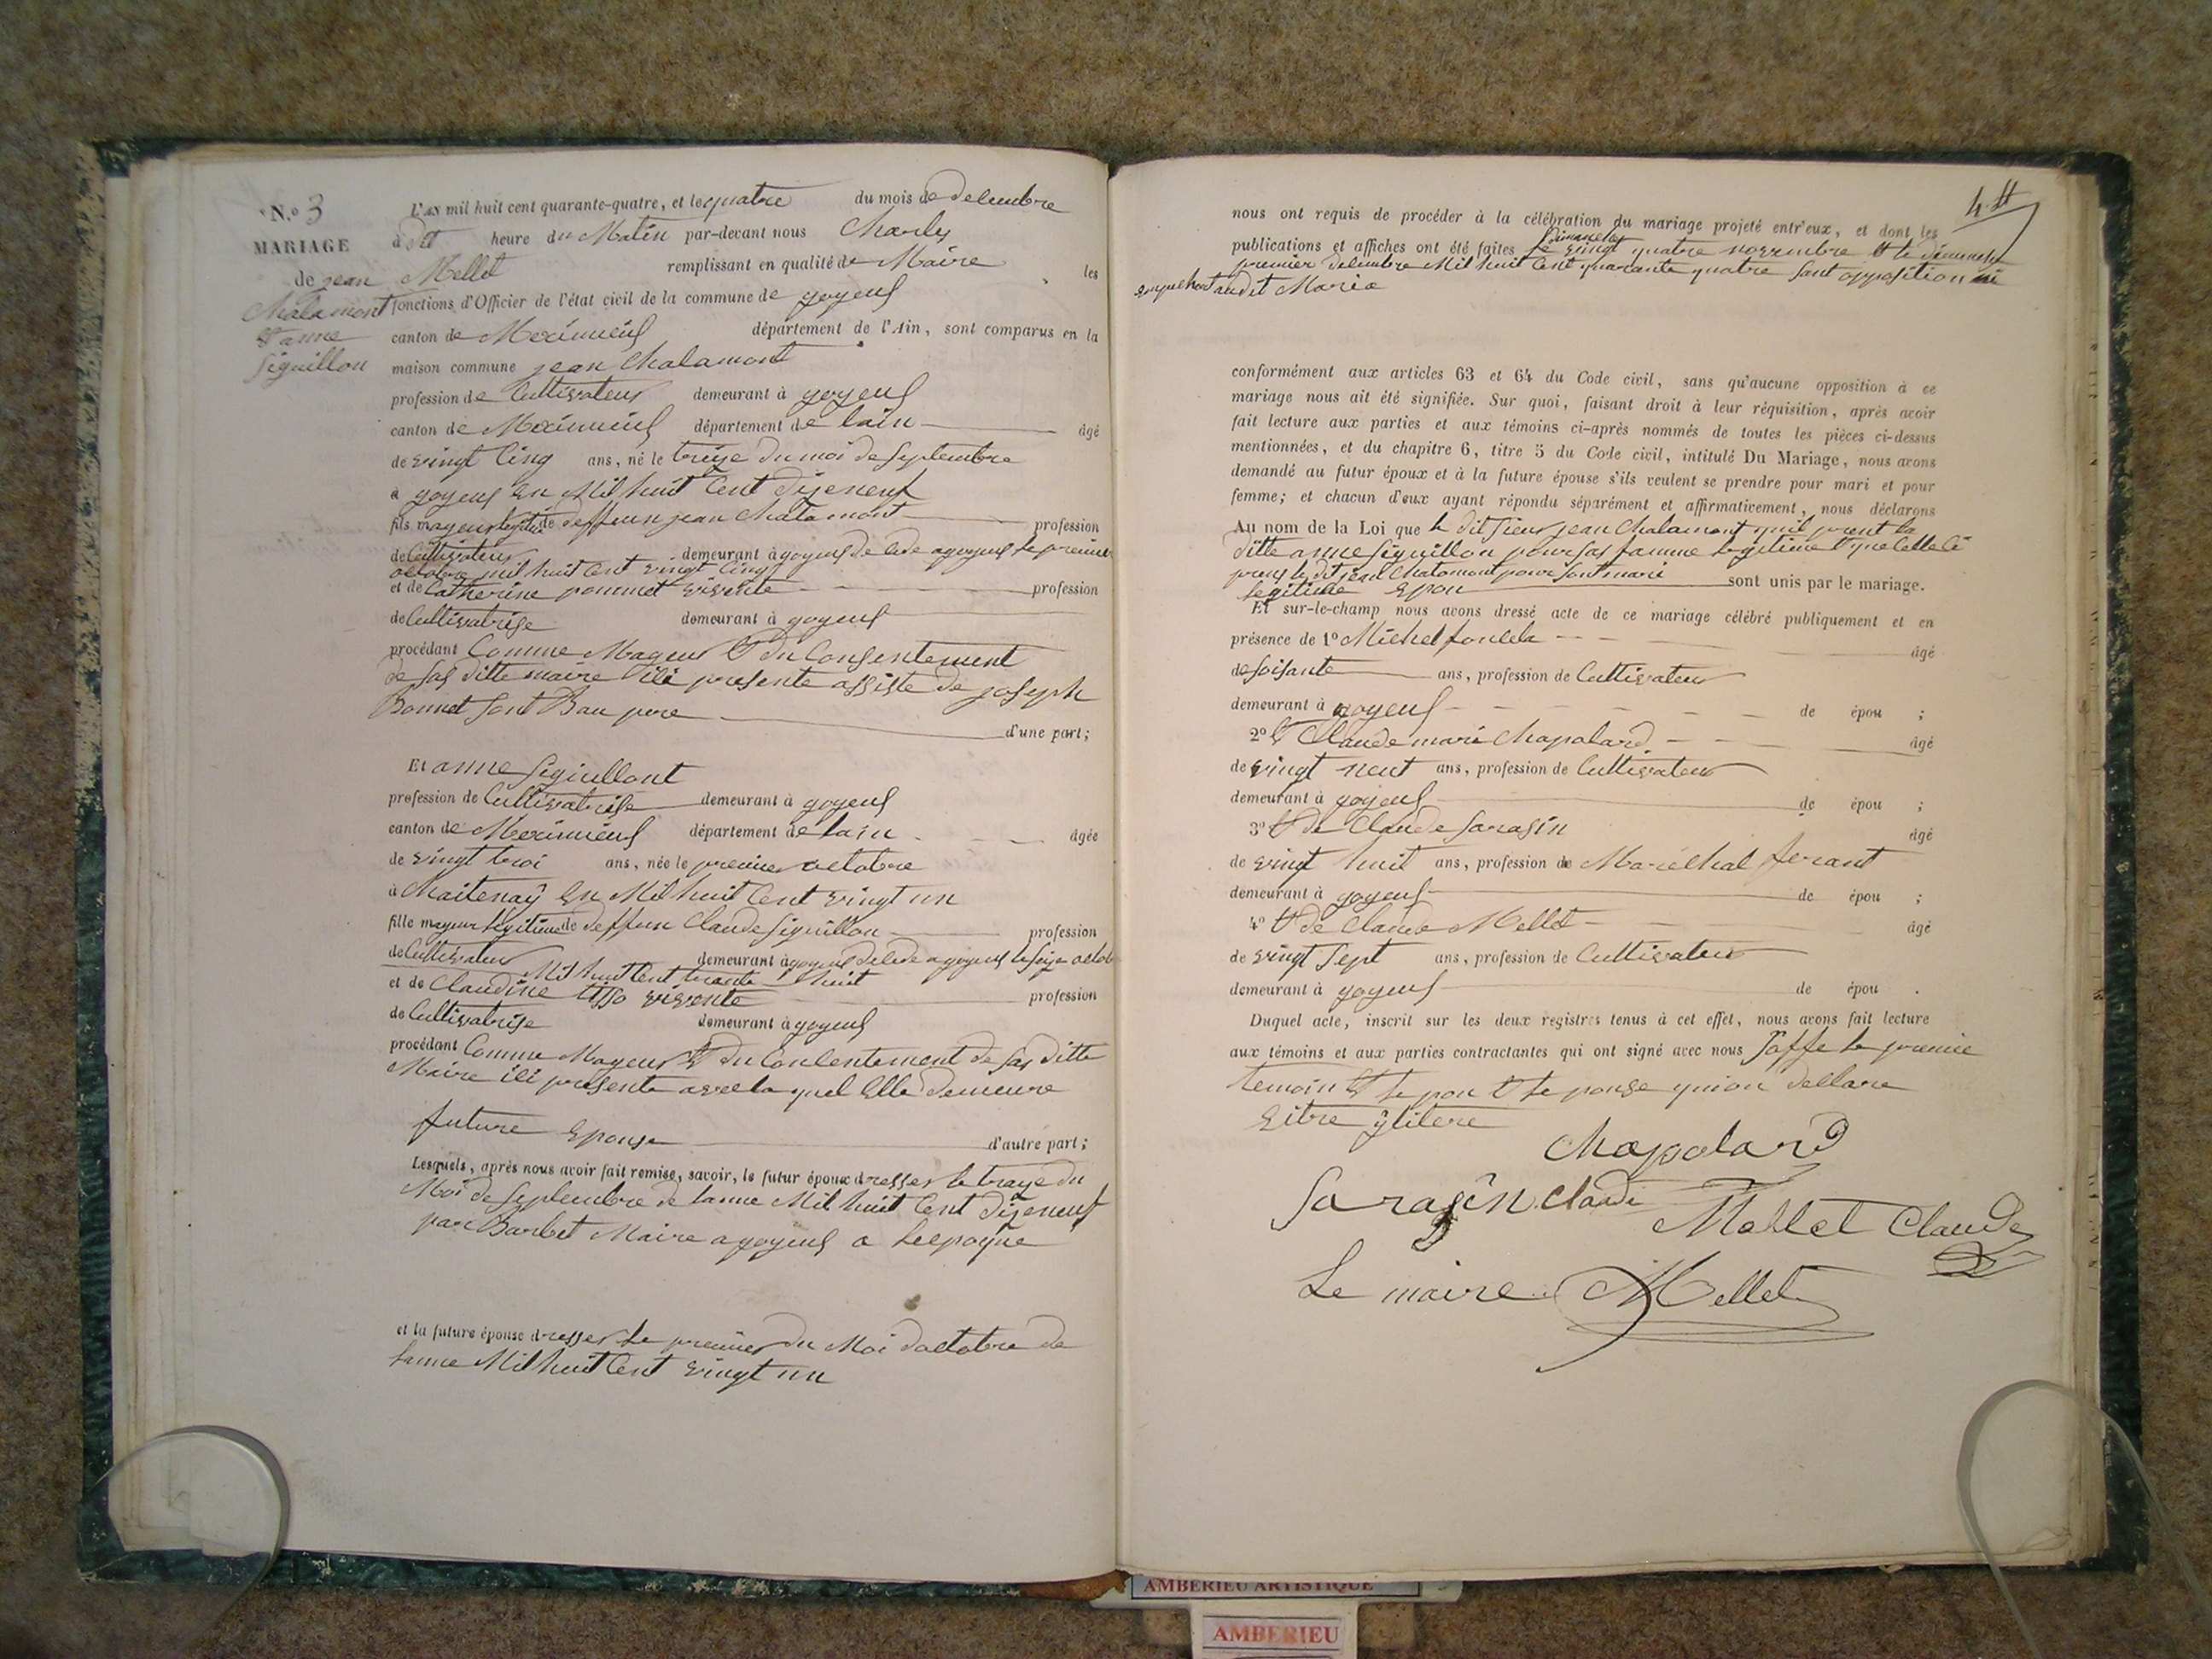 N.o 3
MARIAGE
de jean
Chalamont
et anne
siguillon
L'AN mil huit cent quarante-quatre, et le quatre du mois de decembre
à dit heure du Matin par-devant nous Charles
Mellet remplissant en qualité de Maire les
fonctions d'Officier de l'état civil de la commune de joyeux
canton de Meximieux département de l'Ain, sont comparus en la
maison commune jean Chalamont
profession de Cultivateur demeurant à joyeux
canton de Meximieux département de lain âgé
de vingt cinq ans, né le treize du moi de septembre
à joyeux en Mil huit Cent dizeneuf
fils mayeur legitime de deffeun jean Chalamont profession
de Cultivateur demeurant à joyeux de cede a joyeux le premier
octobre mil huit cent vingt cinq
et de Catherine pommet vivente profession
de Cultivatrise demeurant à joyeux
procédant Comme Mageur et du Consentement
de sas ditte maire ici presente assiste de joseph
Bonnet sont Bau pere d'une part;
Et anne siguillont
profession de Cultivatrise demeurant à joyeux
canton de Meximieux département de lain âgée
de vingt troi ans, née le premier octobre
à Chaitenay en Mil huit Cent vingt un
fille mayeur legitime de deffeun Claude siguillon profession
de Cultivateur demeurant à joyeux decede a joyeux le seize octob
Mil huit Cent trente huit
et de Claudine tisso vivente profession
de Cultivatrise demeurant à joyeux
procédant Comme Mayeur et du Concentement de sas ditte
Maire ici presente avec la quel Elle demeure
future Epouse d'autre part;
Lesquels, après nous avoir fait remise, savoir, le futur époux dresser le traize du
Moi de septembre de lanne Mil huit Cent dizeneuf
par Barbet Maire a joyeux a
et la future épouse dresser le premier du Moi doctobre de
lanne Mil huit Cent vingt un
nous ont requis de procéder à la célébration du mariage projeté entr'eux, et dont les
publications et affiches ont été faites le dimanche vingt quatre novembre et le dimanche
premier decembre Mil huit Cent quarante quatre sant opposition ni
audit Maria
conformément aux articles 63 et 64 du Code civil, sans qu'aucune opposition à ce
mariage nous ait été signifiée. Sur quoi, faisant droit à leur réquisition, après avoir
fait lecture aux parties et aux témoins ci-après nommés de toutes les pièces ci-dessus
mentionnées, et du chapitre 6, titre 5 du Code civil, intitulé Du Mariage, nous avons
demandé au futur époux et à la future épouse s'ils veulent se prendre pour mari et pour
femme; et chacun d'eux ayant répondu séparément et affirmativement, nous déclarons
Au nom de la Loi que le dit sieur jean Chalamont quil prent la
ditte anne siguillon pour sas famme legitime et que Celle Ci
prens le dit jean Chalomont pour sont marie
legitime Epou sont unis par le mariage.
Et sur-le-champ nous avons dressé acte de ce mariage célébré publiquement et en
présence de 1o Michel âgé
de soisante ans, profession de Cultivateur
demeurant à joyeux de épou ;
2o et Claude marie Chapolard âgé
de vingt neut ans, profession de Cultivateur
demeurant à joyeux de épou ;
3o et de Claude sarasin âgé
de vingt huit ans, profession de Maréchal ferant
demeurant à joyeux de épou ;
4o et de Claude Mellet âgé
de vingt sept ans, profession de Cultivateur
demeurant à joyeux de épou .
Duquel acte, inscrit sur les deux registres tenus à cet effet, nous avons fait lecture
aux témoins et aux parties contractantes qui ont signé avec nous saffe le premie
temoin et le pou et le pouse qui on dellare
Chapolard
Sarasin Claude
Mellet Claude
Le maire Mellet
AMBERIEU ARTISTIQUE
AMBERIEU